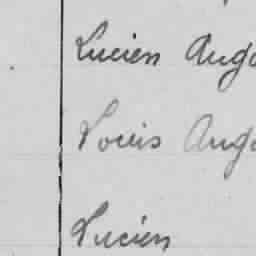 Lucien Aug
Louis Aug
Lucien